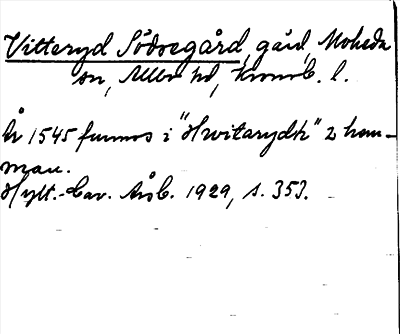 Vitteryd Södregård, gård, Moheda
sn, Allbo hd, Kronob. l.
År 1545 funnos i "Hwitarydh" 2 han-
man.
Hylt.-Cav. Årsb. 1929, s. 353.